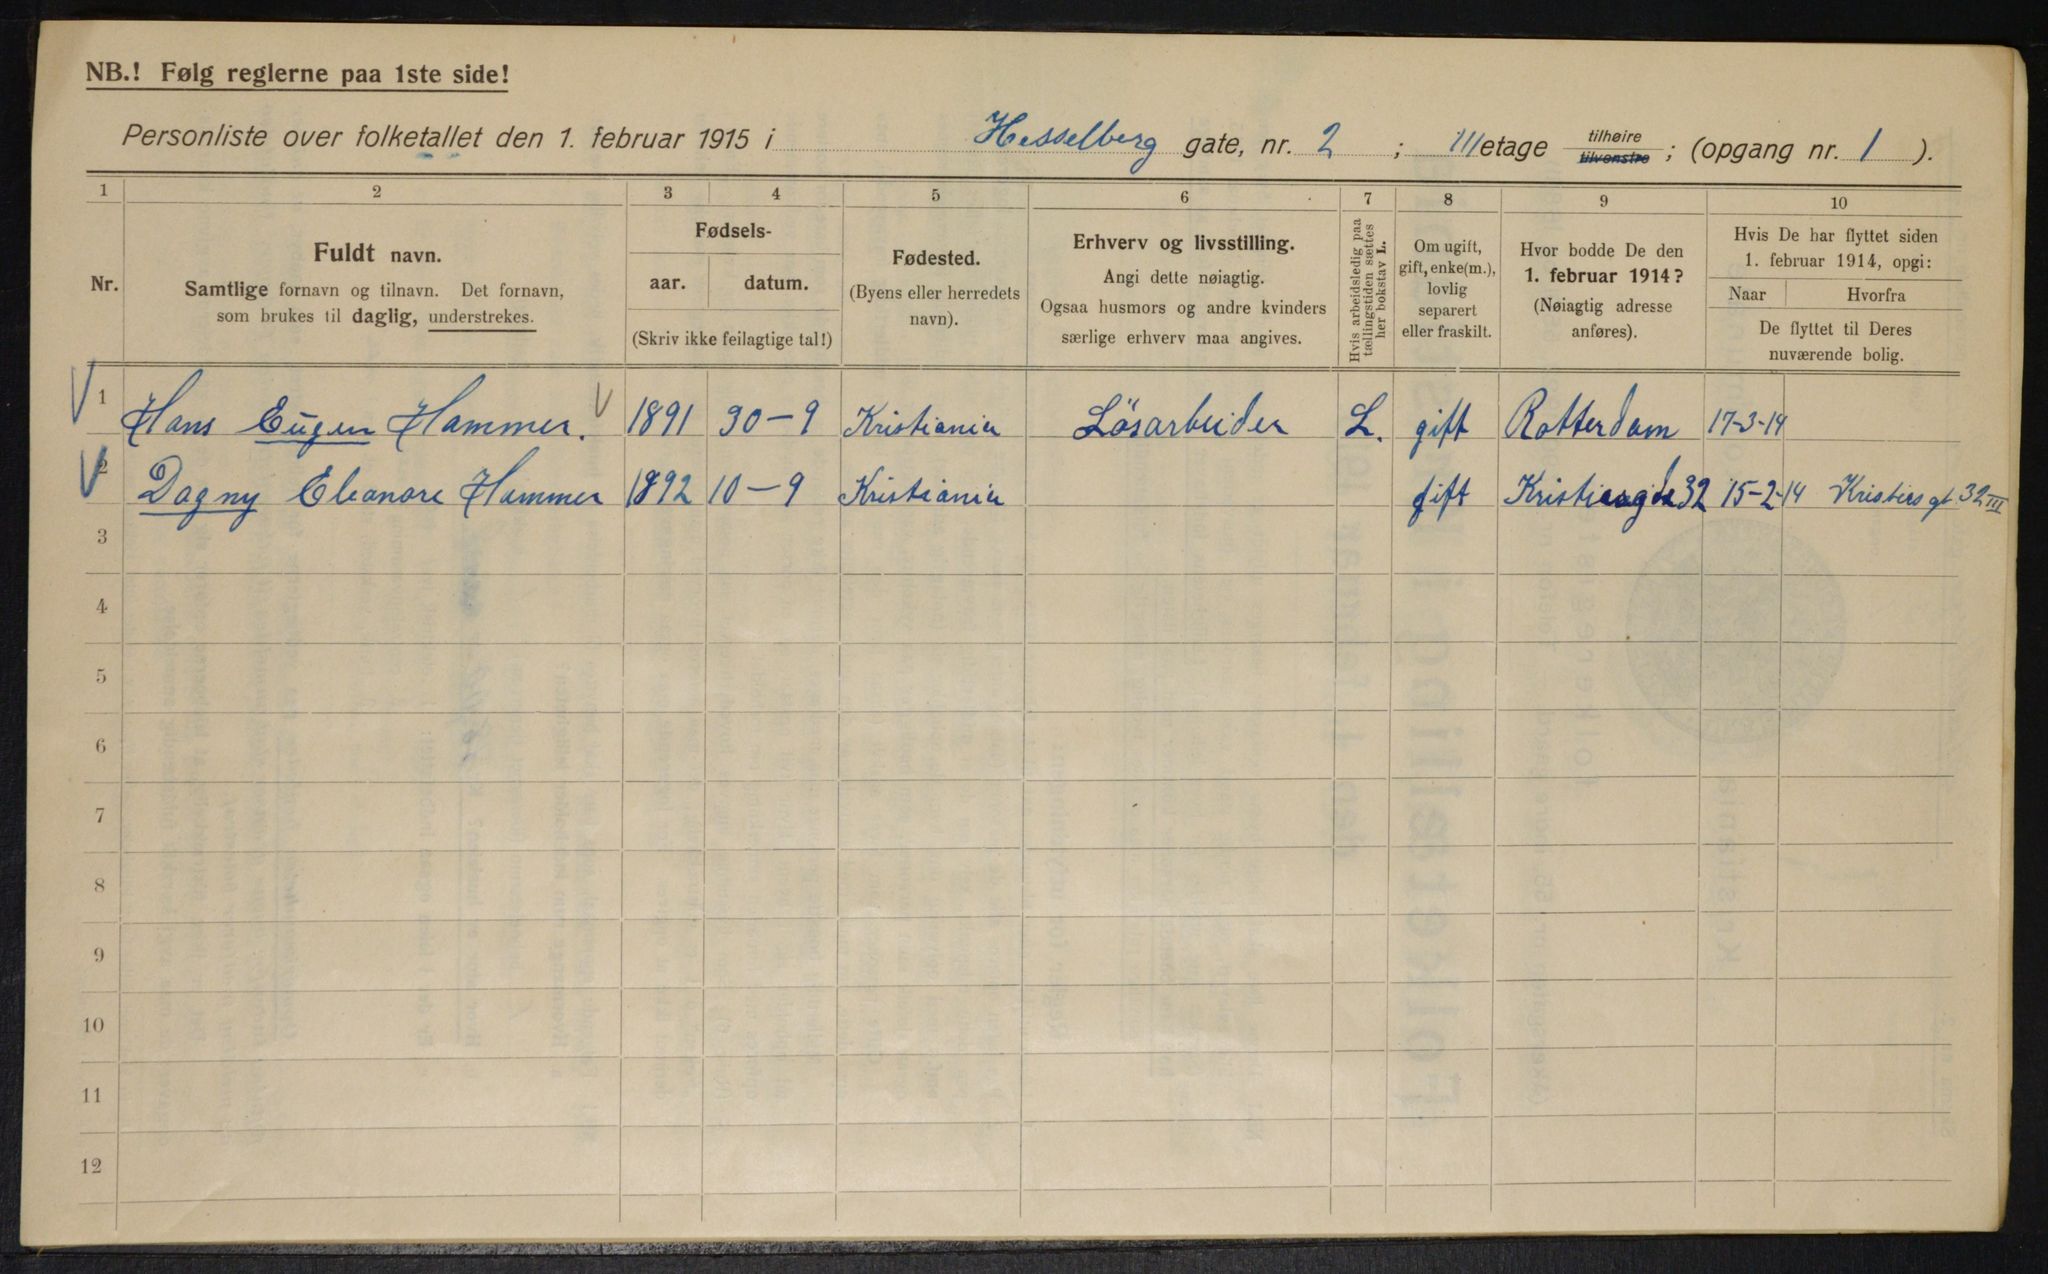 NB.! Følg reglerne paa 1ste side!
Personliste over folketallet den 1. februar 1915 i Hesselberg gate, nr. 2 ; III etage tilhøire tilvenstre ; (opgang nr. 1 ).
1 2 3 4 5 6 7 8 9 10
Nr.
Fuldt navn.
Samtlige fornavn og tilnavn. Det fornavn,
som brukes til daglig, understrekes.
Fødsels-
aar. datum.
(Skriv ikke feilagtige tal!)
Fødested.
(Byens eller herredets
navn).
Erhverv og livsstilling.
Angi dette nøiagtig.
Ogsaa husmors og andre kvinders
særlige erhverv maa angives.
Hvis arbeidsledig paa
tællingstiden sættes
her bokstav L.
Om ugift,
gift, enke(m.),
lovlig
separert
eller fraskilt.
Hvor bodde De den
1. februar 1914?
(Nøiagtig adresse
anføres).
Hvis De har flyttet siden
1. februar 1914, opgi:
Naar Hvorfra
De flyttet til Deres
nuværende bolig.
1 Hans Eugen Hammer. 1891 30-9 Kristiania Løsarbeider L. gift Rotterdam 17-3-14
2 Dagny Eleonore Hammer 1892 10-9 Kristiania gift 32 15-2-14 32 III
3
4
5
6
7
8
9
10
11
12